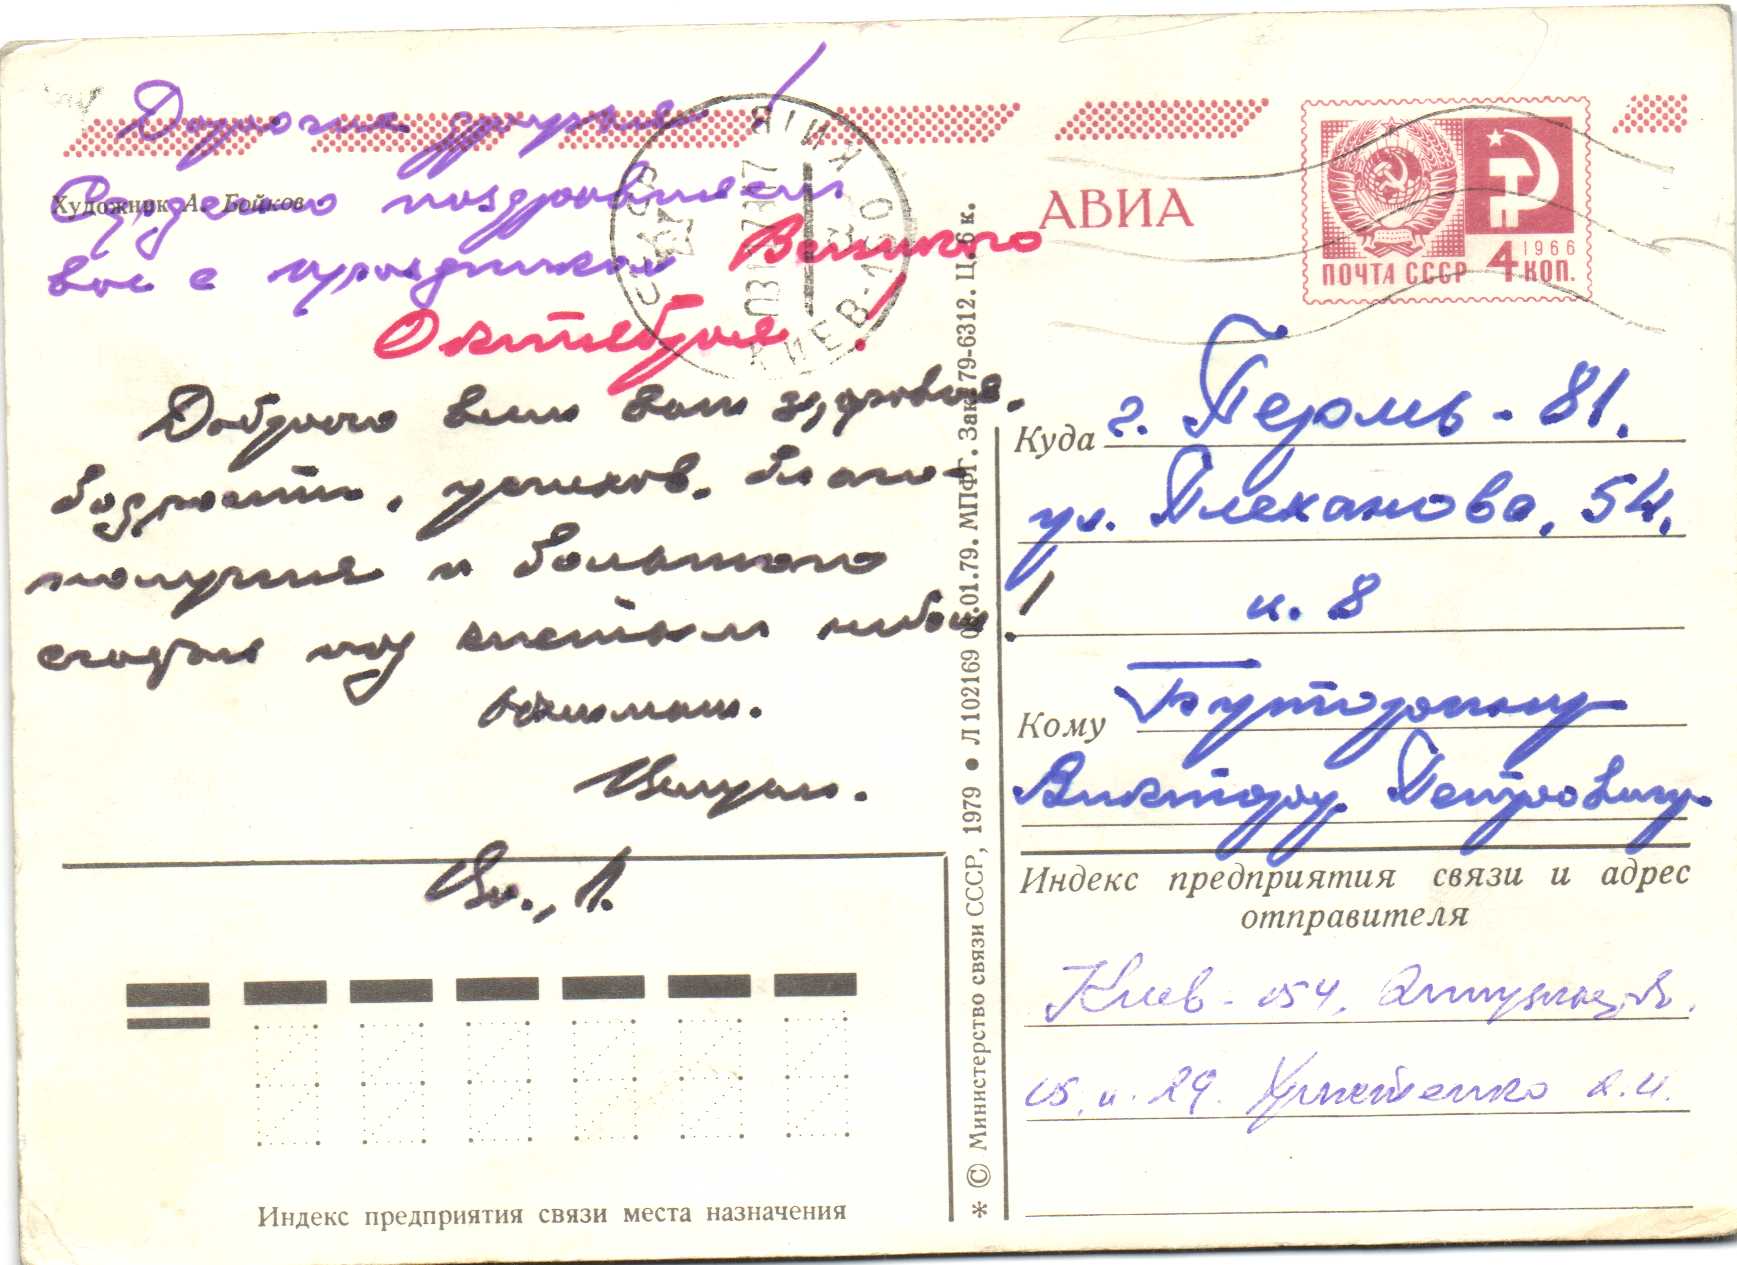 Дорогие друзья!
Художник А. Бойков
Сердечно поздравляем
вас с праздником Великого
Октября!
Доброго вам всем здоровья,
бодрости, успехов, благо-
получия и большого
счастья под мирным небом!
Обнимаем.
Целуем.
АВИА
ПОЧТА СССР 4 КОП.
1966
СССР
КИЇВ
КИЕВ-150
Куда г. Пермь-81.
ул. Плеханова, 54,
к. 8
Кому
Виктору Петровичу.
Индекс предприятия связи и адрес
отправителя
Киев-054,
29. Христенко
* © Министерство связи СССР, 1979 • Л 102169 01.79. МПФГ. Зак. 79-6312. Ц. 6 к.
Индекс предприятия связи места назначения